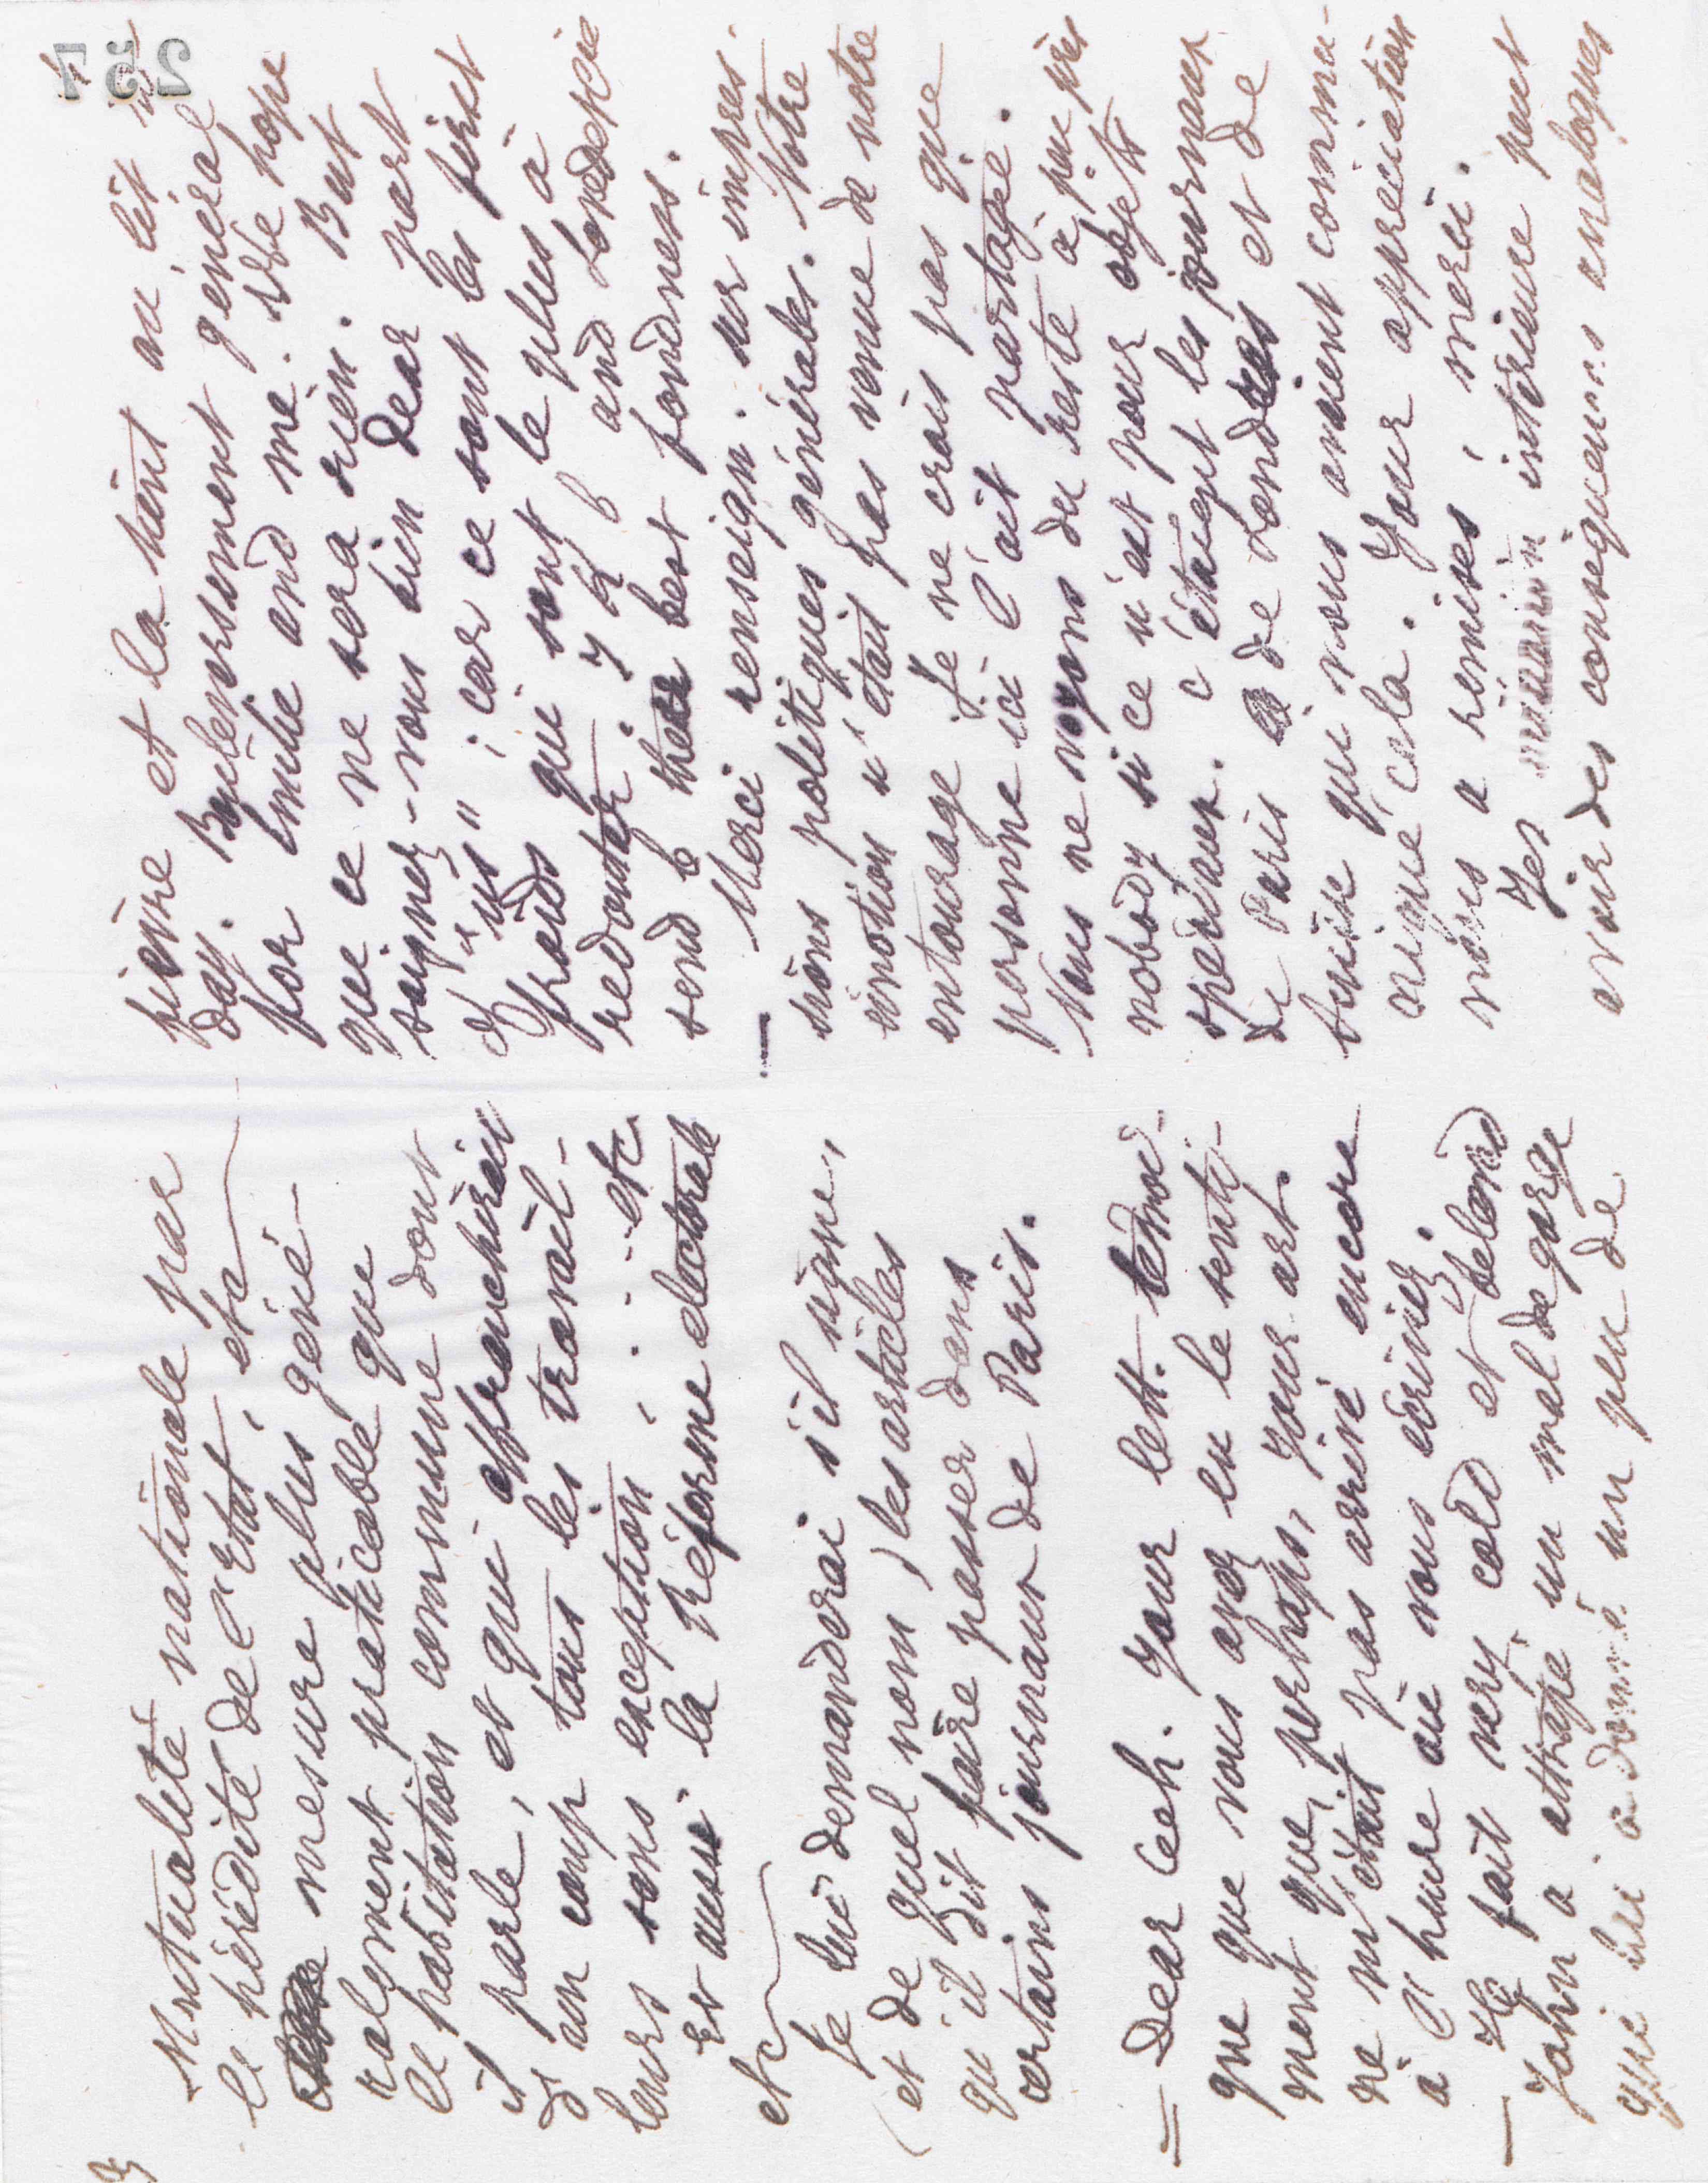 Mutualité nationale par
l'hérédité de l'Etat, etc
mesure plus géné-
ralement praticable que
l'habitation commune dont
il parle, et qui affranchirait
d'un coup tous les travail-
leurs sans exception, . . . etc
Et aussi la Réforme électorale
etc
Je lui demanderai s'il signe,
(et de quel nom) les articles
qu'il dit faire passer dans
certains journaux de Paris.
— Dear Ceh. Your lett.
que que vous avez eu le senti-
ment que, perhaps, your art.
ne m'était pas arrivé encore
à l'heure où vous écriviez.
— Il fait very cold et
John a attrapé un mal de gorge
qui lui a donné un peu de
257
fièvre et la tient au lit
day. Bouleversement général
for Emilie and me. We hope
que ce ne sera rien. But
soignez-vous bien dear part
of "us"; car ce sont les first
froids qui sont le plus à
redouter. and
send best fondness.
— Merci renseign. sur impres-
sions politiques générales. Votre
émotion n'était pas venue de notre
entourage. Je ne crois pas que
personne ici l'ait partagée.
Nous ne voyons du reste à peu près
nobody si ce n'est pour objets
spéciaux. C'étaient les journaux
de Paris & de Londres et de
Suisse qui nous avaient commu-
niqué cela. Your appréciation
nous a remises, merci.
Yes intérieure peut
avoir des conséquences analogues